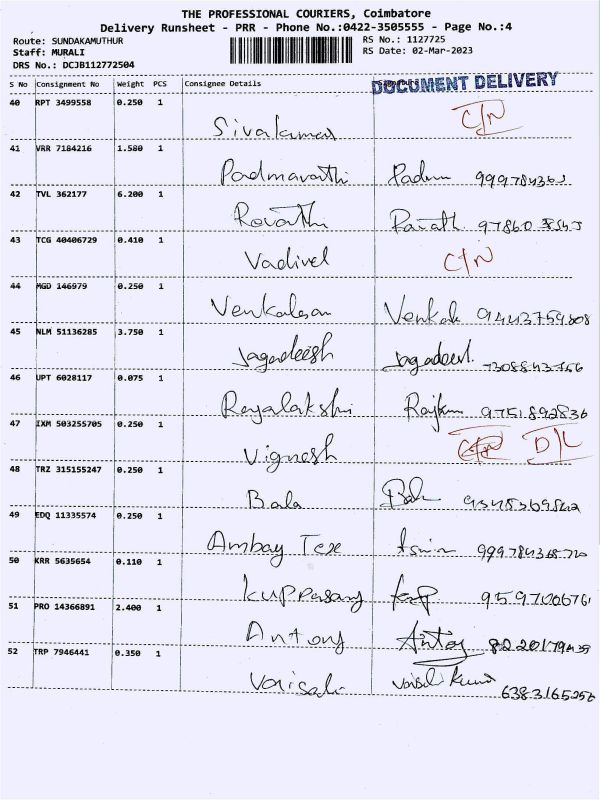 THE PROFESSIONAL COURIERS, Coimbatore
Delivery Runsheet - PRR - Phone No.:0422-3505555 - Page No.:4
Route: SUNDAKAMUTHUR RS No.: 1127725
Staff: MURALI RS Date: 02-Mar-2023
DRS No.: DCJB112772504
S No Consignment No Weight PCS Consignee Details DOCUMENT DELIVERY
40 RPT 3499558 0.250 1 C/N
Sivakumar
41 VRR 7184216 1.580 1
Padmavathi
42 TVL 362177 6.200 1
Revathi
43 TCG 40406729 0.410 1
Vadivel C/N
44 MGD 146979 0.250 1
Venkatesan 9443759808
45 NLM 51136285 3.750 1
Jagadeesh
46 UPT 6028117 0.075 1
Rajalakshmi 9751892836
47 IXM 503255705 0.250 1
Vignesh D/L
48 TRZ 315155247 0.250 1
Bala
49 EDQ 11335574 0.250 1
Ambay Tex
50 KRR 5635654 0.110 1
Kuppusamy
51 PRO 14366891 2.400 1
Antony Antony
52 TRP 7946441 0.350 1
6383165256